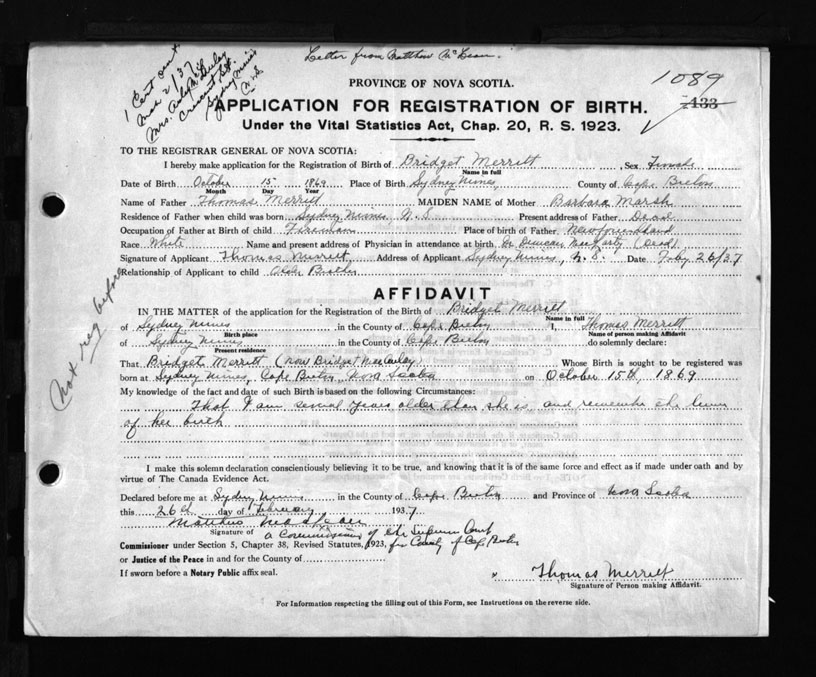 Letter from Matthew McLean.
1 Cert sent
Mar 2/37
Mrs. McAuley
Crescent St.
Sydney Mines
N.S.
1089
433
PROVINCE OF NOVA SCOTIA.
APPLICATION FOR REGISTRATION OF BIRTH.
Under the Vital Statistics Act, Chap. 20, R. S. 1923.
TO THE REGISTRAR GENERAL OF NOVA SCOTIA:
I hereby make application for the Registration of Birth of Bridget Merritt Sex Female
Name in full
Date of Birth October 15 1869 Place of Birth Sydney Mines County of Cape Breton
Month Day Year
Name of Father Thomas Merritt MAIDEN NAME of Mother Barbara Marsh
Residence of Father when child was born Sydney Mines N.S. Present address of Father Dead
Occupation of Father at Birth of child Fireman Place of birth of Father Newfoundland
Race White Name and present address of Physician in attendance at birth Dr Duncan (Dead)
Signature of Applicant Thomas Merritt Address of Applicant Sydney Mines, N.S. Date Feby 26/37
Relationship of Applicant to child Older Brother
Not reg before
AFFIDAVIT
IN THE MATTER of the application for the Registration of the Birth of Bridget Merritt
Name in full
of Sydney Mines in the County of Cape Breton I, Thomas Merritt
Birth place Name of person making Affidavit
of Sydney Mines in the County of Cape Breton do solemnly declare:
Present residence
That Bridget Merritt (now Bridget McCauley) Whose Birth is sought to be registered was
born at Sydney Mines, Cape Breton, Nova Scotia on October 15th, 1869
My knowledge of the fact and date of such Birth is based on the following Circumstances:
That I am several years older than she is and remember the time
of her birth
I make this solemn declaration conscientiously believing it to be true, and knowing that it is of the same force and effect as if made under oath and by
virtue of The Canada Evidence Act.
Declared before me at Sydney Mines in the County of Cape Breton and Province of Nova Scotia
this 26th day of February 1937
Matthew
Signature of a Commissioner of the Supreme Court
Commissioner under Section 5, Chapter 38, Revised Statutes, 1923, for County of Cape Breton
or Justice of the Peace in and for the County of
If sworn before a Notary Public affix seal.
x Thomas Merritt
Signature of Person making Affidavit.
For Information respecting the filling out of this Form, see Instructions on the reverse side.